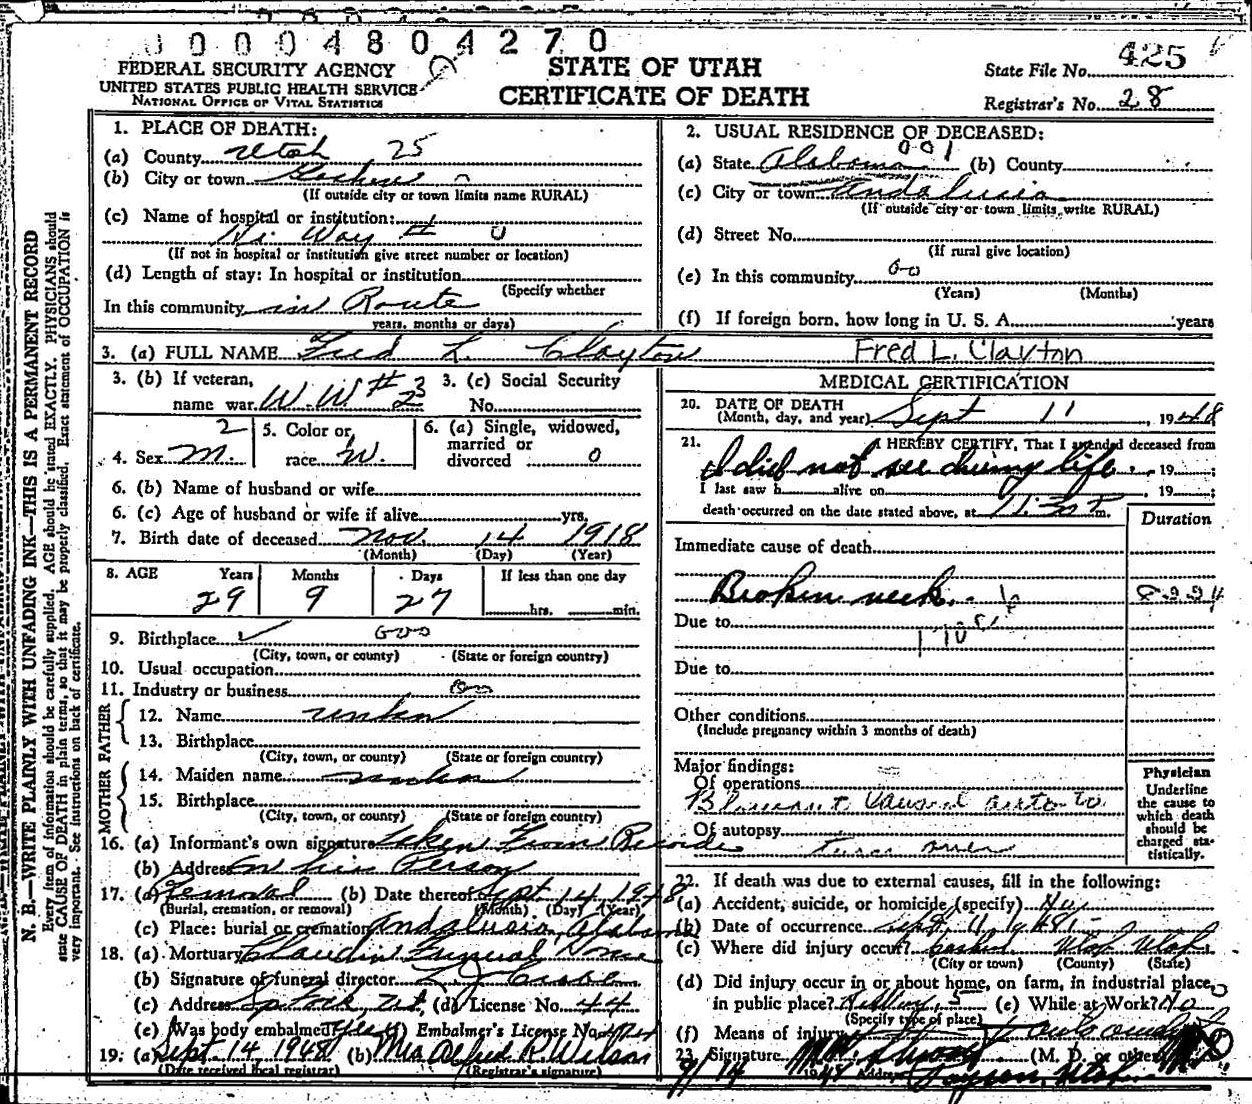 0000480 4270
FEDERAL SECURITY AGENCY
UNITED STATES PUBLIC HEALTH SERVICE
NATIONAL OFFICE OF VITAL STATISTICS
STATE OF UTAH
CERTIFICATE OF DEATH
State File No. 425
Registrar's No. 28
N. B.—WRITE PLAINLY WITH UNFADING INK—THIS IS A PERMANENT RECORD
Every item of information should be carefully supplied. AGE should be stated EXACTLY. PHYSICIANS should
state CAUSE OF DEATH in plain terms, so that it may be properly classified. Exact statement of OCCUPATION is
very important. See instructions on back of certificate.
1. PLACE OF DEATH:
(a) County Utah 25
(b) City or town Goshen
(If outside city or town limits name RURAL)
(c) Name of hospital or institution:
Hi Way # 0
(If not in hospital or institution give street number or location)
(d) Length of stay: In hospital or institution
(Specify whether
In this community in Route
years, months or days)
2. USUAL RESIDENCE OF DECEASED:
001
(a) State Alabama (b) County
(c) City or town Andalusia
(If outside city or town limits write RURAL)
(d) Street No.
(If rural give location)
(e) In this community 00
(Years) (Months)
(f) If foreign born, how long in U. S. A. years
3. (a) FULL NAME Fred L. Clayton Fred L. Clayton
3. (b) If veteran,
name war W.W # 2
3. (c) Social Security
No.
4. Sex M. 2
5. Color or
race W.
6. (a) Single, widowed,
married or
divorced 0
6. (b) Name of husband or wife
6. (c) Age of husband or wife if alive yrs.
7. Birth date of deceased Nov. 14 1918
(Month) (Day) (Year)
8. AGE Years Months Days If less than one day
29 9 27 hrs. min.
9. Birthplace 000
(City, town, or county) (State or foreign country)
10. Usual occupation
11. Industry or business
FATHER
12. Name unkn
13. Birthplace
(City, town, or county) (State or foreign country)
MOTHER
14. Maiden name unkn
15. Birthplace
(City, town, or county) (State or foreign country)
16. (a) Informant's own signature taken From Records
(b) Address on his Person
17. (a) Removal (b) Date thereof Sept. 14 1948
(Burial, cremation, or removal) (Month) (Day) (Year)
(c) Place: burial or cremation Andalusia, Alabama
18. (a) Mortuary Claudin Funeral Home
(b) Signature of funeral director
(c) Address (d) License No. 44
(e) Was body embalmed? Yes (f) Embalmer's License No.
19. (a) Sept 14 1948 (b) Mrs Alfred R. Wilson
(Date received local registrar) (Registrar's signature)
MEDICAL CERTIFICATION
20. DATE OF DEATH
(Month, day, and year) Sept 11, 1948
21. I HEREBY CERTIFY, That I attended deceased from
I did not see during life, 19 ;
I last saw h alive on , 19 ;
death occurred on the date stated above, at 11:30 P m.
Duration
Immediate cause of death
Broken neck.
Due to
Due to
Other conditions
(Include pregnancy within 3 months of death)
Major findings:
Of operations
auto to
Of autopsy
turn over
Physician
Underline
the cause to
which death
should be
charged sta-
tistically.
22. If death was due to external causes, fill in the following:
(a) Accident, suicide, or homicide (specify)
(b) Date of occurrence Sept. 11, 1948
(c) Where did injury occur? Goshen Utah Utah
(City or town) (County) (State)
(d) Did injury occur in or about home, on farm, in industrial place,
in public place? (e) While at Work? No
(Specify type of place)
(f) Means of injury
23. Signature (M. D. or other)
9/14 1948 Address Payson, Utah